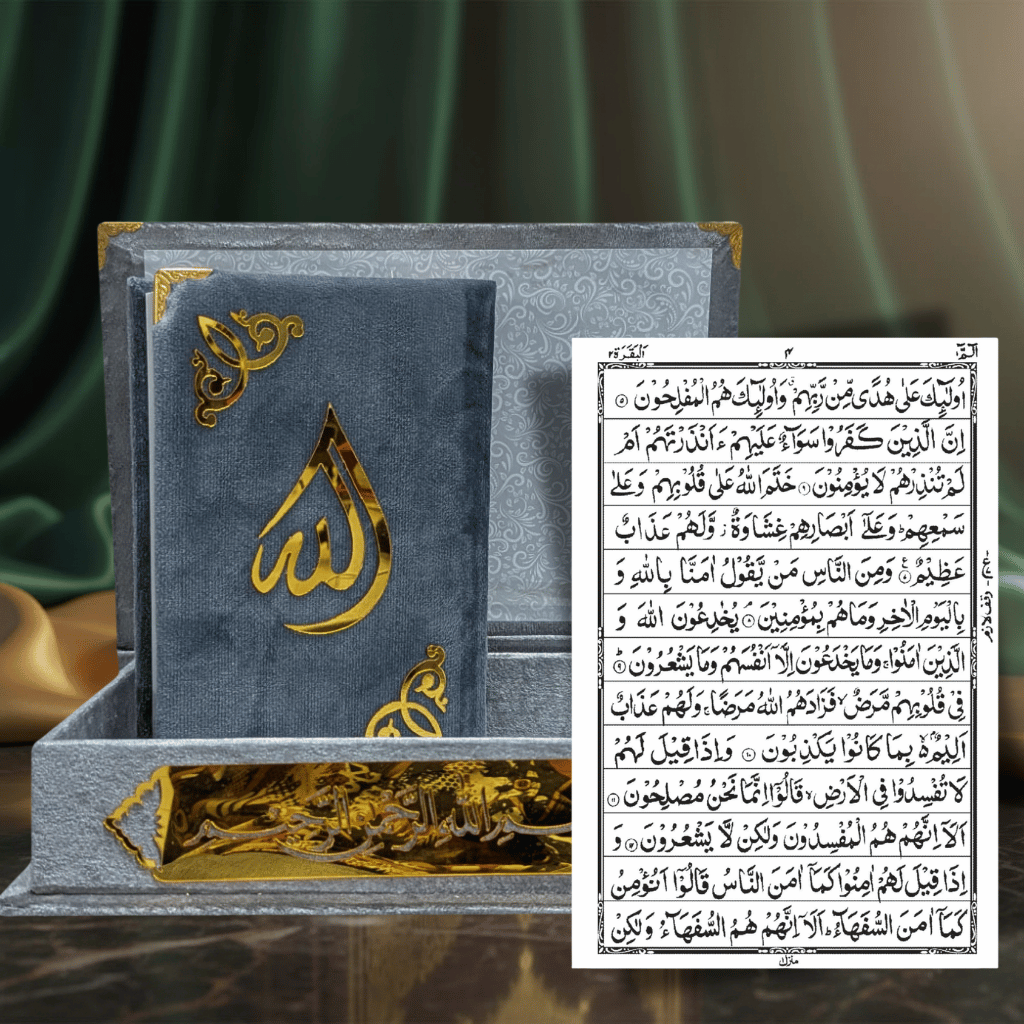 الله
بسم الله الرحمن الرحيم
الٓمّٓ ۱
۴
اَلْبَقَرَة ۲
اُولٰٓئِكَ عَلٰى هُدًى مِّنْ رَّبِّهِمْ ۙ وَاُولٰٓئِكَ هُمُ الْمُفْلِحُوْنَ ۵
اِنَّ الَّذِيْنَ كَفَرُوْا سَوَآءٌ عَلَيْهِمْ ءَاَنْذَرْتَهُمْ اَمْ
لَمْ تُنْذِرْهُمْ لَا يُؤْمِنُوْنَ ۶ خَتَمَ اللّٰهُ عَلٰى قُلُوْبِهِمْ وَعَلٰى
سَمْعِهِمْ ؕ وَعَلٰٓى اَبْصَارِهِمْ غِشَاوَةٌ ز وَّلَهُمْ عَذَابٌ
عَظِيْمٌ ۷ ع وَمِنَ النَّاسِ مَنْ يَّقُوْلُ اٰمَنَّا بِاللّٰهِ وَ
بِالْيَوْمِ الْاٰخِرِ وَمَا هُمْ بِمُؤْمِنِيْنَ ۘ ۸ يُخٰدِعُوْنَ اللّٰهَ وَ
الَّذِيْنَ اٰمَنُوْا ۚ وَمَا يَخْدَعُوْنَ اِلَّاۤ اَنْفُسَهُمْ وَمَا يَشْعُرُوْنَ ؕ ۹
فِيْ قُلُوْبِهِمْ مَّرَضٌ ۙ فَزَادَهُمُ اللّٰهُ مَرَضًا ۚ وَلَهُمْ عَذَابٌ
اَلِيْمٌۢ ۙ بِمَا كَانُوْا يَكْذِبُوْنَ ۱۰ وَاِذَا قِيْلَ لَهُمْ
لَا تُفْسِدُوْا فِي الْاَرْضِ ۙ قَالُوْۤا اِنَّمَا نَحْنُ مُصْلِحُوْنَ ۱۱
اَلَاۤ اِنَّهُمْ هُمُ الْمُفْسِدُوْنَ وَلٰكِنْ لَّا يَشْعُرُوْنَ ۱۲ وَ
اِذَا قِيْلَ لَهُمْ اٰمِنُوْا كَمَاۤ اٰمَنَ النَّاسُ قَالُوْۤا اَنُؤْمِنُ
كَمَاۤ اٰمَنَ السُّفَهَآءُ ؕ اَلَاۤ اِنَّهُمْ هُمُ السُّفَهَآءُ وَلٰكِنْ
وقف لازم